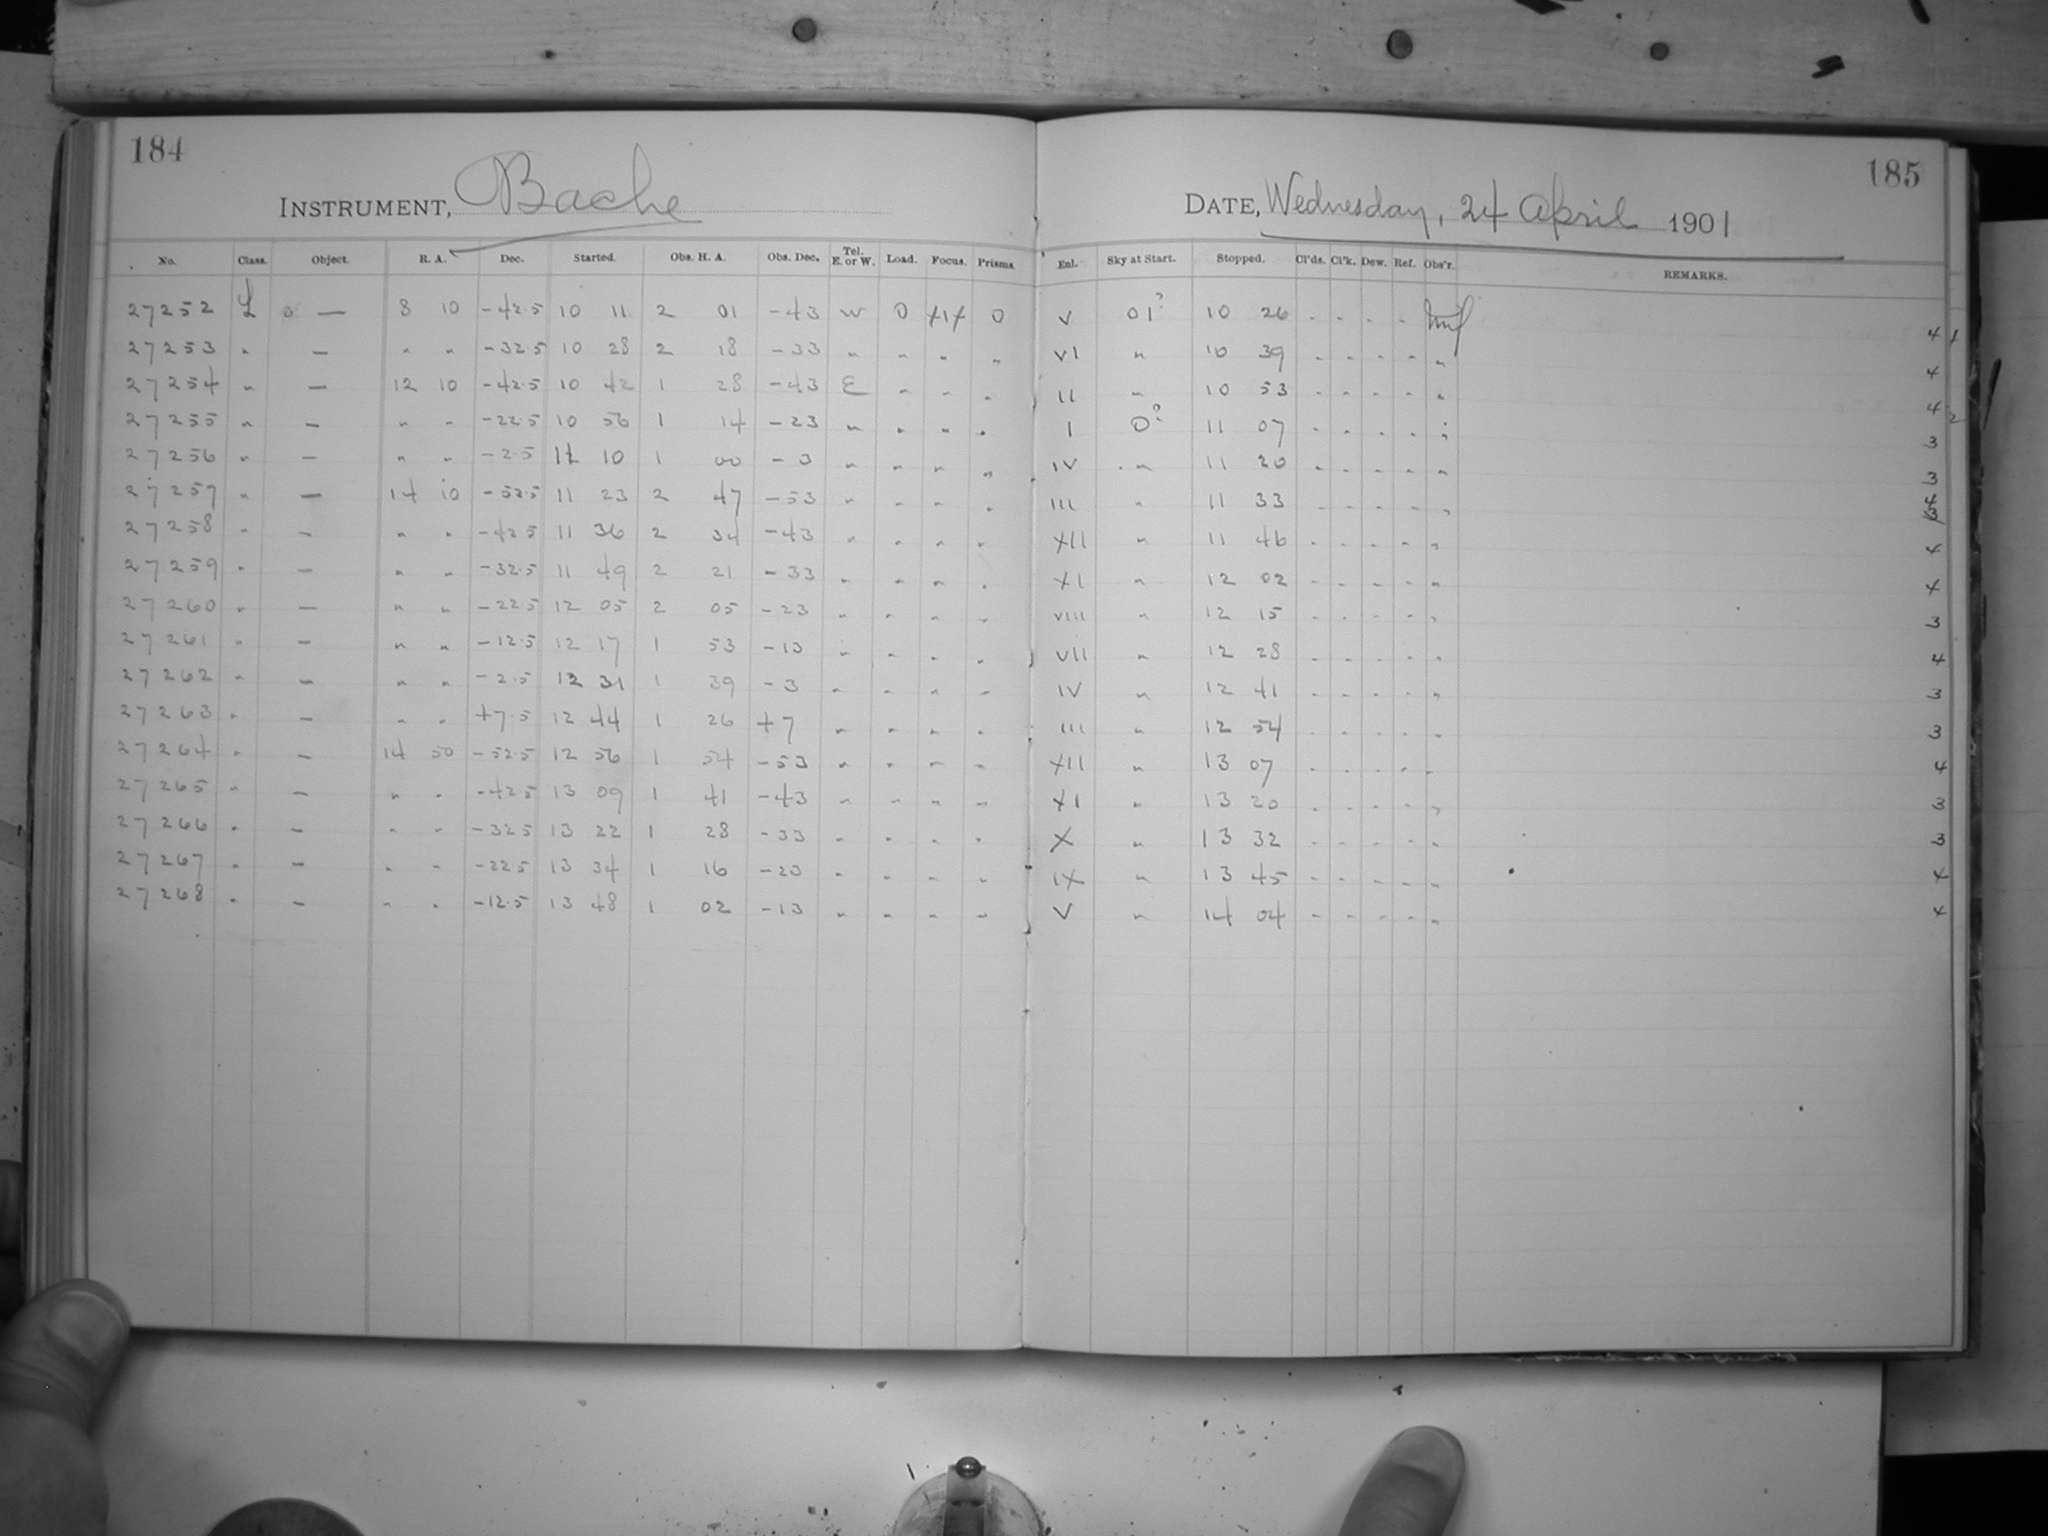 184
INSTRUMENT, Bache
No. Class. Object. R. A. Dec. Started. Obs. H. A. Obs. Dec. Tel. E. or W. Load. Focus. Prisms.
27252 L 0 — 8 10 -42.5 10 11 2 01 -43 W 0 0
27253 " — " " -32.5 10 28 2 18 -33 " " " "
27254 " — 12 10 -42.5 10 42 1 28 -43 E " " "
27255 " — " " -22.5 10 56 1 14 -23 " " " "
27256 " — " " -2.5 11 10 1 00 -3 " " " "
27257 " — 14 10 -52.5 11 23 2 47 -53 " " " "
27258 " — " " -42.5 11 36 2 34 -43 " " " "
27259 " — " " -32.5 11 49 2 21 -33 " " " "
27260 " — " " -22.5 12 05 2 05 -23 " " " "
27261 " — " " -12.5 12 17 1 53 -13 " " " "
27262 " — " " -2.5 12 31 1 39 -3 " " " "
27263 " — " " +7.5 12 44 1 26 +7 " " " "
27264 " — 14 50 -52.5 12 56 1 54 -53 " " " "
27265 " — " " -42.5 13 09 1 41 -43 " " " "
27266 " — " " -32.5 13 22 1 28 -33 " " " "
27267 " — " " -22.5 13 34 1 16 -23 " " " "
27268 " — " " -12.5 13 48 1 02 -13 " " " "
185
DATE, Wednesday, 24 April 1901
Enl. Sky at Start. Stopped. Cl'ds. Cl'k. Dew. Ref. Obs'r. REMARKS.
V 01? 10 26 - - - - 4
VI " 10 39 - - - - " 4
II " 10 53 - - - - " 4
I 0? 11 07 - - - - " 3
IV " 11 20 - - - - " 3
III " 11 33 - - - - "
XII " 11 46 - - - - " 4
XI " 12 02 - - - - " 4
VIII " 12 15 - - - - " 3
VII " 12 28 - - - - " 4
IV " 12 41 - - - - " 3
III " 12 54 - - - - " 3
XII " 13 07 - - - - " 4
XI " 13 20 - - - - " 3
X " 13 32 - - - - " 3
IX " 13 45 - - - - " 4
V " 14 04 - - - - " 4